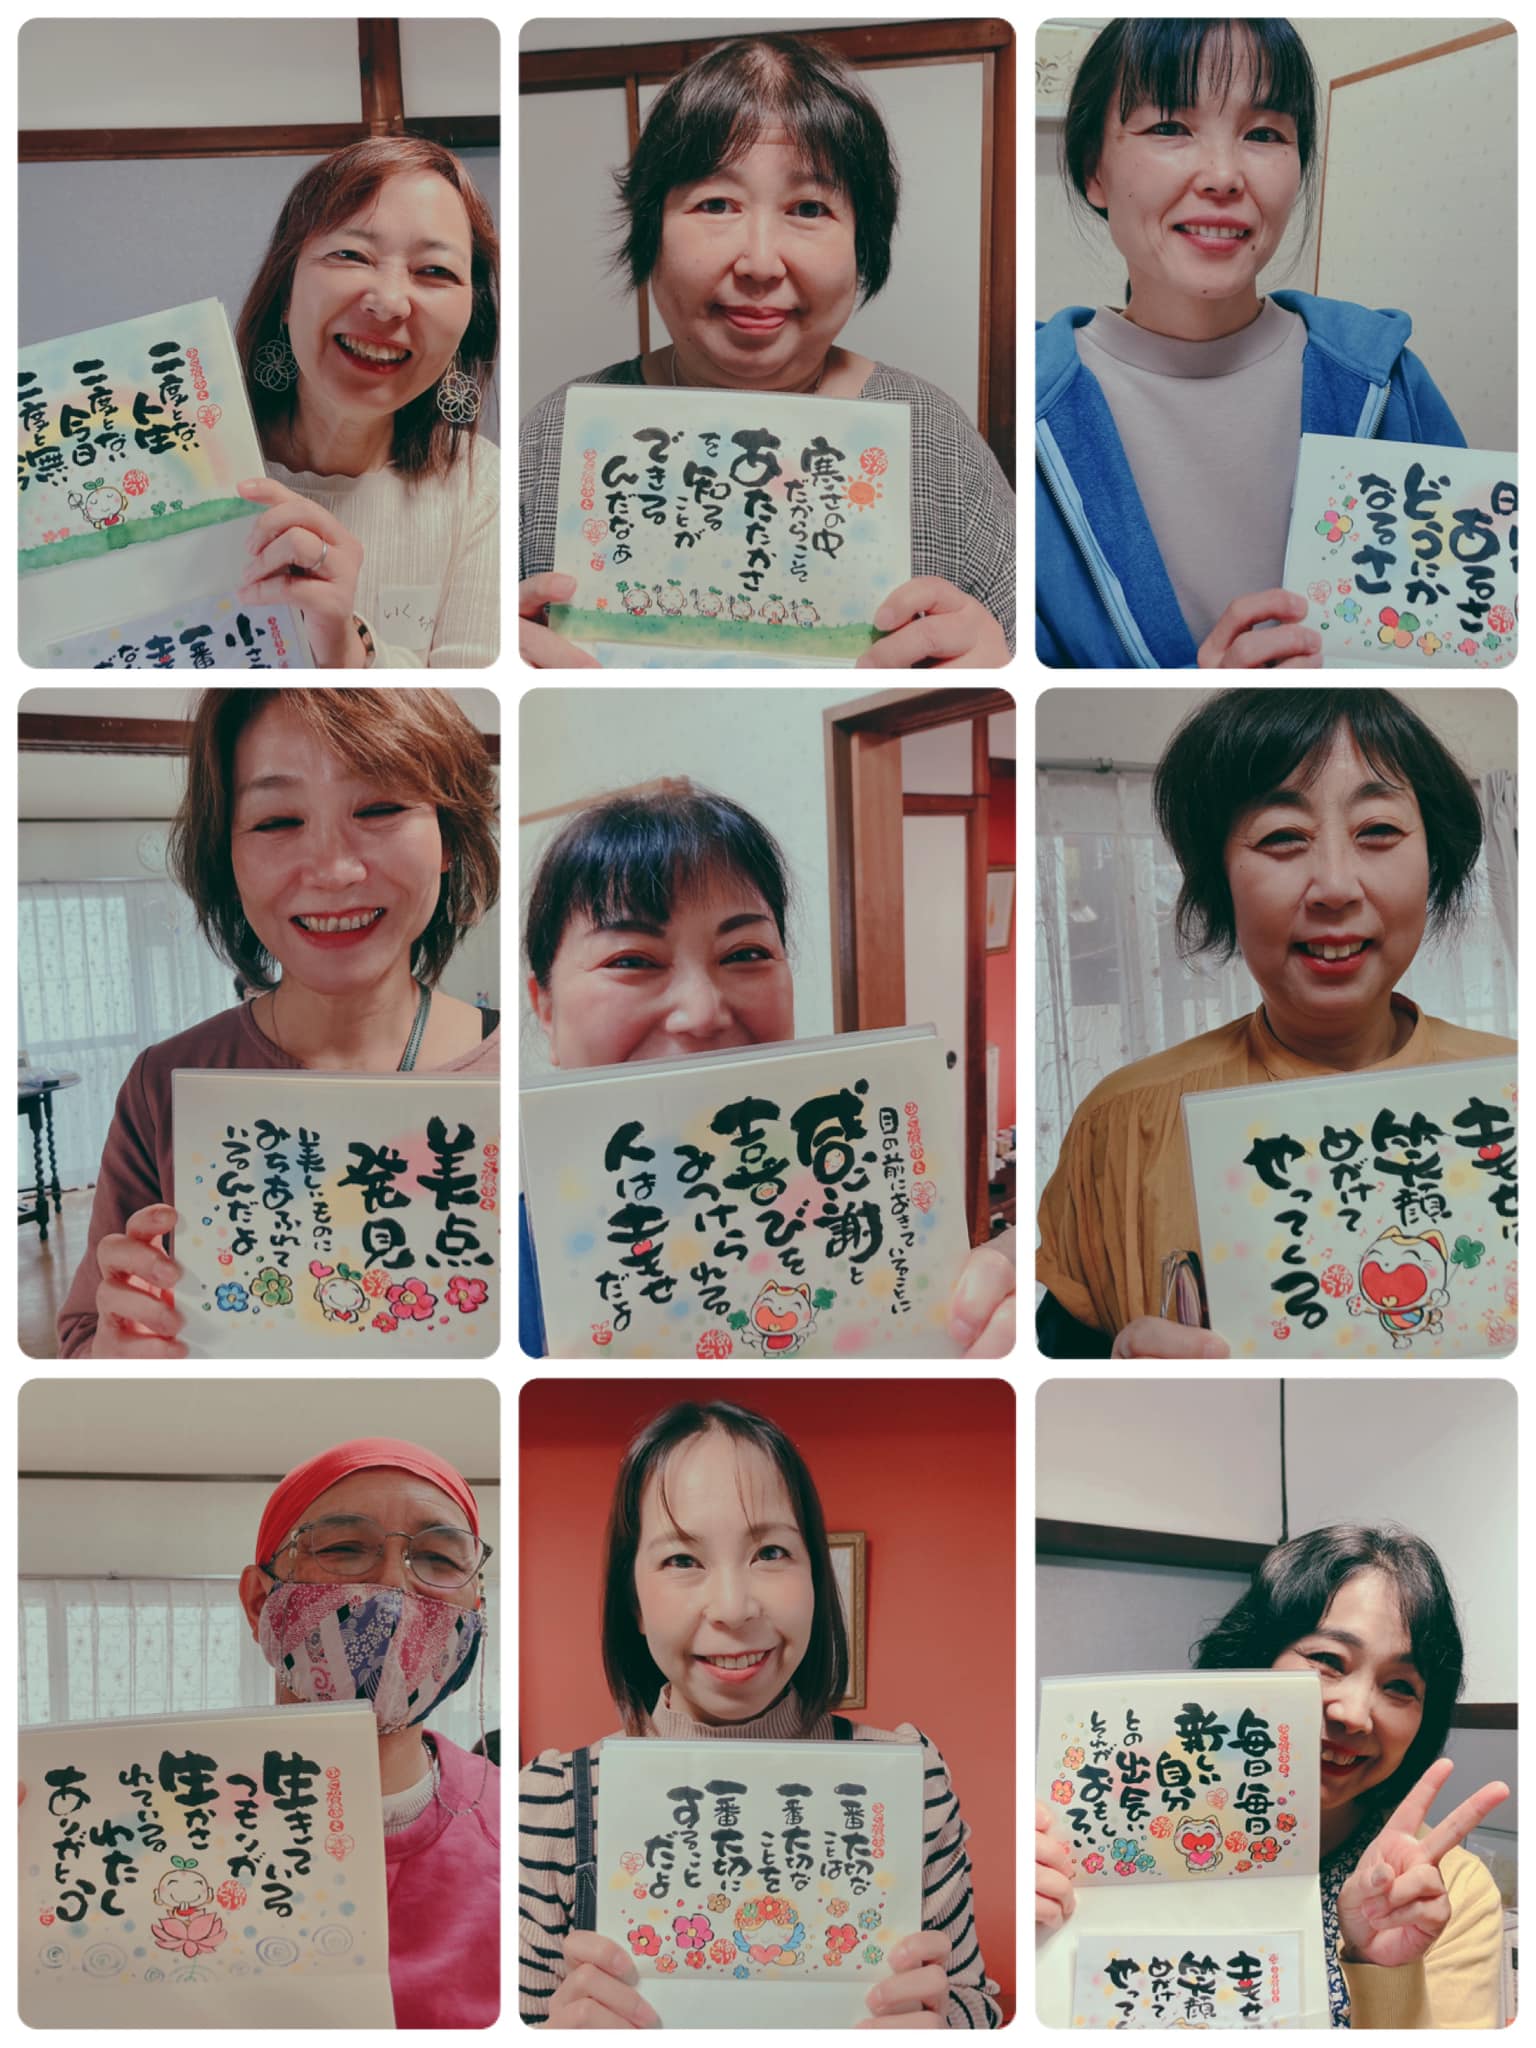 二度とない
人生
二度とない
今日
二度と無
いくち
小さ
一番
幸
寒さの中
だからこそ
あたたかさ
を知る
ことが
できる
んだなぁ
あるさ
どうにか
なるさ
美点
発見
美しいものに
みちあふれて
いるんだよ
目の前におきていることに
感謝と
喜びを
みつけられる
人は幸せ
だよ
幸せは
笑顔
めがけて
やってくる
生きている
つもりが
生かさ
れている
わたし
ありがとう
一番大切な
ことは
一番大切な
ことを
一番大切に
すること
だよ
毎日毎日
新しい
自分
との出会い
それが
おもしろい
幸せ
笑顔
めがけて
やって